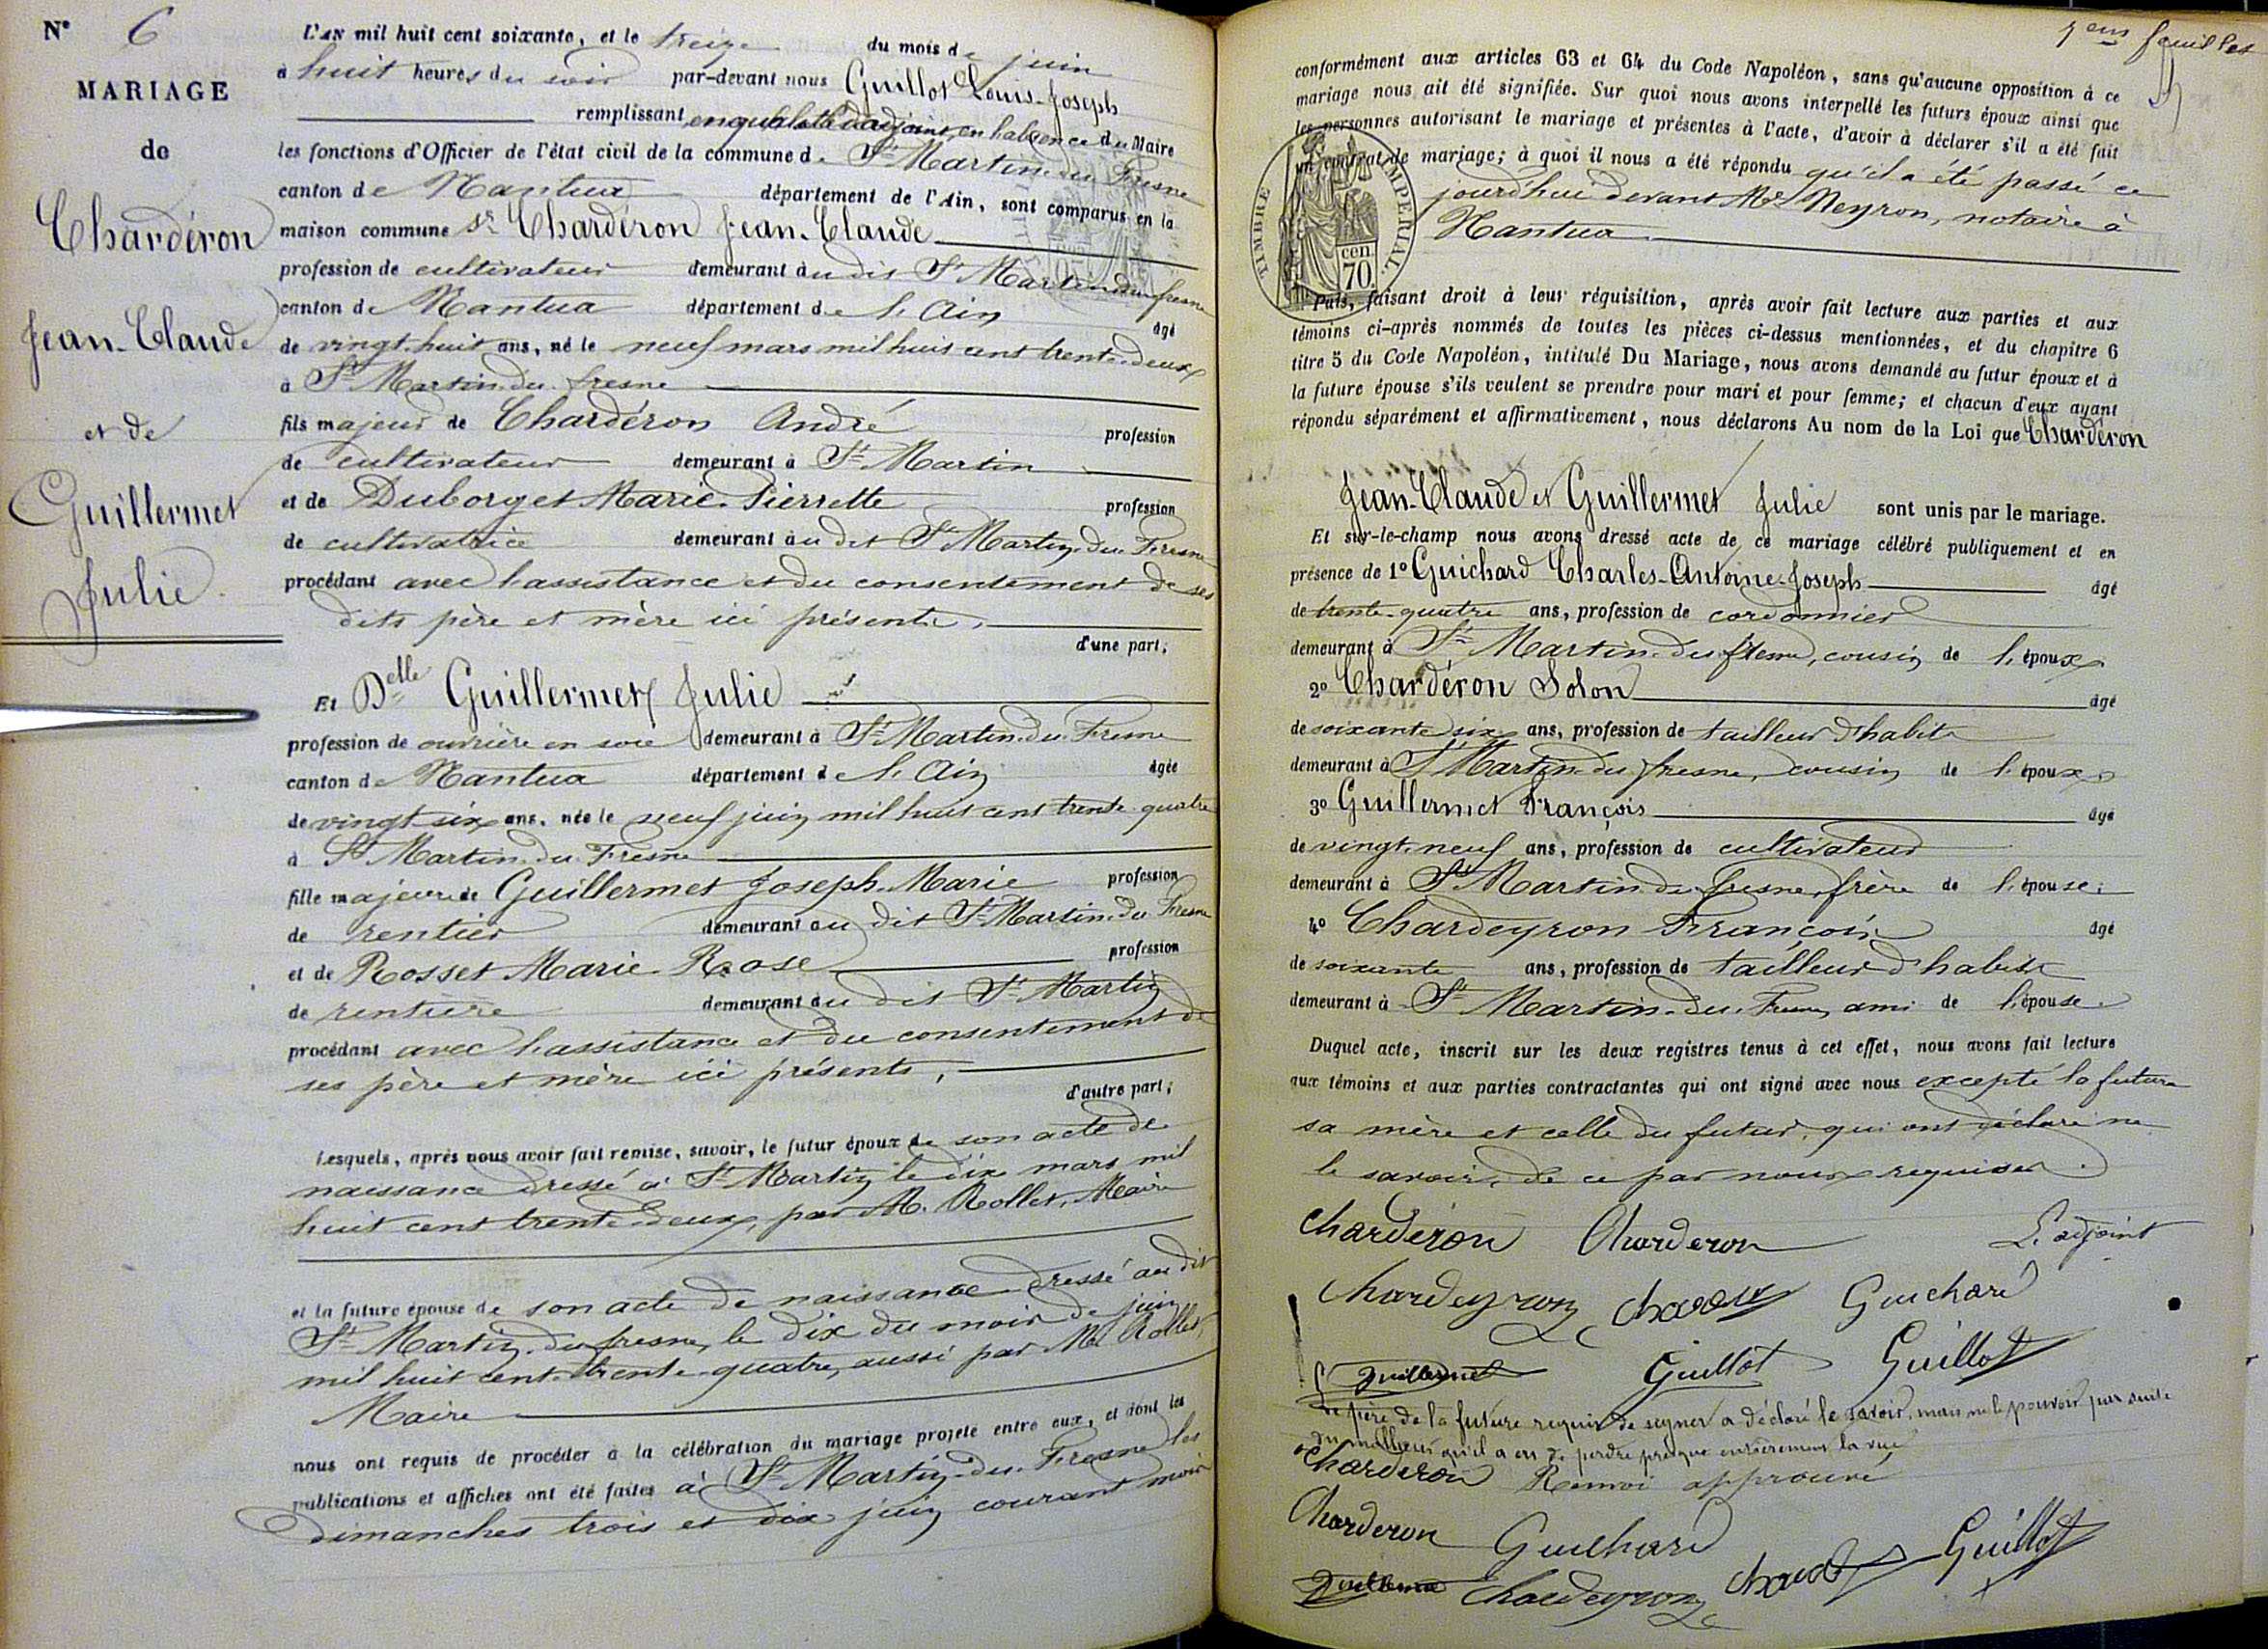 N° 6
MARIAGE
de
Chardéron
Jean-Claude
et de
Guillermet
Julie
L'AN mil huit cent soixante, et le treize du mois de juin
à huit heures du soir par-devant nous Guillot Louis-Joseph
remplissant en qualité d'adjoint, en l'absence du Maire
les fonctions d'Officier de l'état civil de la commune de St Martin-du-Fresne
canton de Nantua département de l'Ain, sont comparus en la
maison commune Sr Chardéron Jean-Claude
profession de cultivateur demeurant au dit St Martin-du-fresne
canton de Nantua département de l'Ain âgé
de vingt-huit ans, né le neuf mars mil huit cent trente-deux
à St Martin-du-fresne
fils majeur de Chardéron André profession
de cultivateur demeurant à St Martin
et de Duborget Marie-Pierrette profession
de cultivatrice demeurant au dit St Martin-du-Fresne
procédant avec l'assistance et du consentement de ses
dits père et mère ici présents,
d'une part;
Et Delle Guillermet Julie
profession de ouvrière en soie demeurant à St Martin-du-Fresne
canton de Nantua département de l'Ain âgée
de vingt-six ans, née le neuf juin mil huit cent trente-quatre
à St Martin-du-Fresne
fille majeure de Guillermet Joseph-Marie profession
de rentier demeurant au dit St Martin-du-Fresne
et de Rosset Marie-Rose profession
de rentière demeurant au dit St Martin
procédant avec l'assistance et du consentement de
ses père et mère ici présents,
d'autre part;
Lesquels, après nous avoir fait remise, savoir, le futur époux de son acte de
naissance dressé à St Martin le dix mars mil
huit cent trente-deux, par M. Rollet, Maire
et la future épouse de son acte de naissance dressé au dit
St Martin-du-fresne, le dix du mois de juin
mil huit cent trente-quatre, aussi par M. Rollet,
Maire
nous ont requis de procéder à la célébration du mariage projeté entre eux, et dont les
publications et affiches ont été faites à St Martin-du-Fresne les
dimanches trois et dix juin courant mois
feuillet
conformément aux articles 63 et 64 du Code Napoléon, sans qu'aucune opposition à ce
mariage nous ait été signifiée. Sur quoi nous avons interpellé les futurs époux ainsi que
les personnes autorisant le mariage et présentes à l'acte, d'avoir à déclarer s'il a été fait
un contrat de mariage; à quoi il nous a été répondu qu'il a été passé ce
jourd'hui devant Me Neyron, notaire à
Nantua
TIMBRE IMPERIAL.
cen. 70.
Puis, faisant droit à leur réquisition, après avoir fait lecture aux parties et aux
témoins ci-après nommés de toutes les pièces ci-dessus mentionnées, et du chapitre 6
titre 5 du Code Napoléon, intitulé Du Mariage, nous avons demandé au futur époux et à
la future épouse s'ils veulent se prendre pour mari et pour femme; et chacun d'eux ayant
répondu séparément et affirmativement, nous déclarons Au nom de la Loi que Chardéron
Jean-Claude et Guillermet Julie sont unis par le mariage.
Et sur-le-champ nous avons dressé acte de ce mariage célébré publiquement et en
présence de 1° Guichard Charles-Antoine-Joseph âgé
de trente-quatre ans, profession de cordonnier
demeurant à St Martin-du-fresne, cousin de l'époux
2° Chardéron Solon âgé
de soixante six ans, profession de tailleur d'habits
demeurant à St Martin-du-fresne, cousin de l'époux
3° Guillermet François âgé
de vingt-neuf ans, profession de cultivateur
demeurant à St Martin-du-fresne, frère de l'épouse;
4° Chardeyron François âgé
de soixante ans, profession de tailleur d'habits
demeurant à St Martin-du-Fresne, ami de l'épouse.
Duquel acte, inscrit sur les deux registres tenus à cet effet, nous avons fait lecture
aux témoins et aux parties contractantes qui ont signé avec nous excepté la future
sa mère et celle du futur, qui ont déclaré ne
le savoir, de ce par nous requises.
Charderon Charderon L'adjoint
Chardeyron Guichard
Guillermet Guillot Guillot
Le père de la future requis de signer a déclaré le savoir, mais ne le pouvoir par suite
du malheur qu'il a eu de perdre presque entièrement la vue
Charderon Renvoi approuvé
Charderon Guichard
Guillermet Chardeyron Guillot